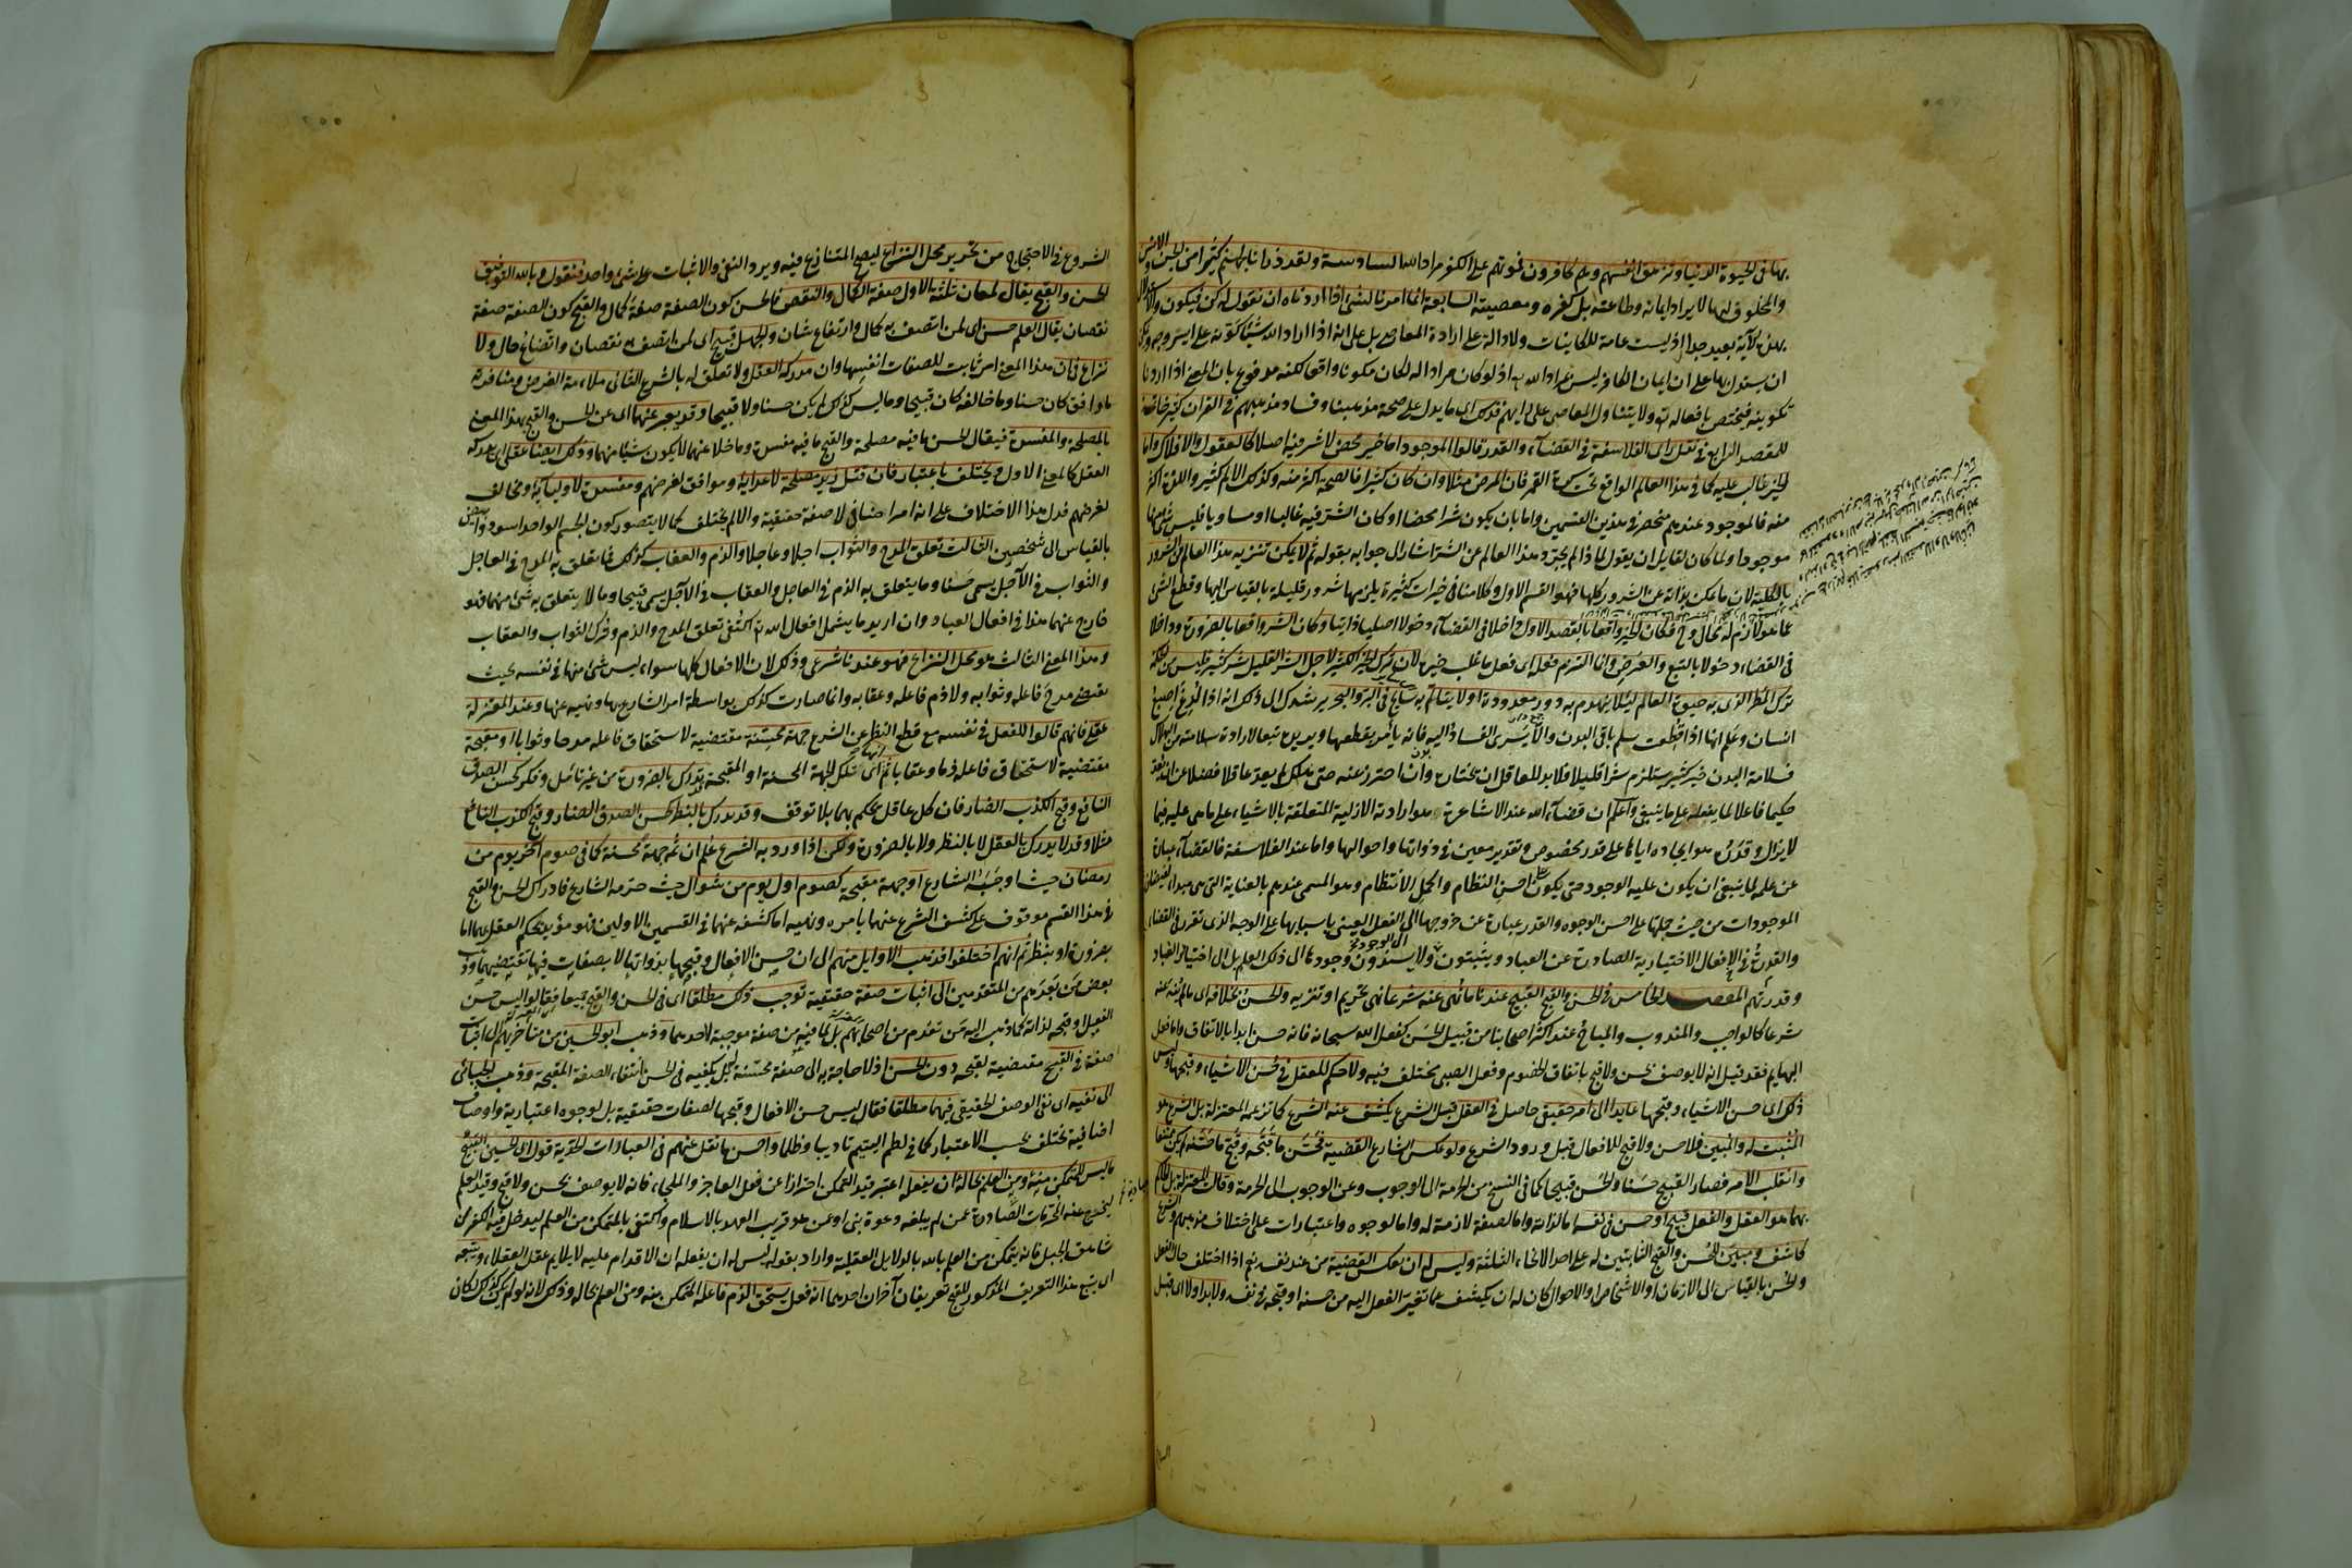 بها في الحيوة الدنيا وتزهق انفسهم وهم كافرون فموتهم على الكفر مراد الله السادسة ولقد ذرأنا لجهنم كثيرا من الجن والانس
والمخلوق لها لا يراد ايمانه وطاعته بل كفره ومعصيته السابعة انما امرنا لشئ اذا اردناه ان نقول له كن فيكون
بهذه الآية بعيد جدا اذ ليست عامة للكاينات ولا دالة على ارادة المعاصي بل على انه اذا اراد الله شيئا كونه على ايسر وجه
ان يستدل بها على ان ايمان الكافر ليس مراد الله تع اذ لو كان مرادا له لكان مكونا واقعا لكنه مدفوع بان المعنى اذا اردنا
تكوينه فيختص بافعاله تع ولا يتناول المعاصي على رأيهم فذلك اي ما يدل على صحة مذهبنا وفساد مذهبهم في القران كثير خارج
المقصد الرابع في نقل راى الفلاسفة في القضاء والقدر قالوا الموجود اما خير محض لا شر فيه اصلا كالعقول والافلاك واما
الخير غالب عليه كما في هذا العالم الواقع تحت كرة القمر فان المرض مثلا وان كان كثيرا فالصحة اكثر منه وكذلك الالم كثير واللذة اكثر
منه فالموجود عندهم منحصر في هذين القسمين واما بان يكون شرا محضا او كان الشر فيه غالبا او مساويا فليس شئ منها
موجودا ولما كان لقايل ان يقول لماذا لم يجرد هذا العالم عن الشر اشار الى جوابه بقوله ثم لا يمكن تنزيه هذا العالم من الشرور
بالكلية لان ما يمكن براته عن الشرور كلها فهو القسم الاول وكلامنا في خيرات كثيرة يلزمها شرور قليلة بالقياس اليها وقطع الشئ
عما هو لازم له محال وح فكان الخير واقعا بالقصد الاول داخلا في القضاء دخولا اصليا ذاتيا وكان الشر واقعا بالضرورة وداخلا
في القضاء دخولا بالتبع والعرض وانما التزم فعله اي فعل ما غلب خيره لان ترك الخير الكثير لاجل الشر القليل شر كثير فليس من الحكمة
ترك المطر الذي به حيوة العالم ليلا ينهدم به دور معدودة او لا يتالم به سايح في البر والبحر يرشدك الى ذلك انه اذا لدغ اصبع
انسان وعلم انها اذا قطعت سلم باقي البدن والا يسرى الفساد اليه فانه يأمر بقطعها ويريده تبعا لارادة سلامته من الهلاك
فسلامة البدن خير كثير يستلزم شرا قليلا فلابد للعاقل ان يختاره وان احترز عنه حتى هلك لم يعد عاقلا فضلا عن ان يعد
حكيما فاعلا لما يفعله على ما ينبغي واعلم ان قضاء الله عند الاشاعرة هو ارادته الازلية المتعلقة بالاشياء على ما هي عليه فيما
لا يزال وقدره هو ايجاده اياها على قدر مخصوص وتقدير معين في ذواتها واحوالها واما عند الفلاسفة فالقضاء عبارة
عن علمه بما ينبغي ان يكون عليه الوجود حتى يكون على احسن النظام واكمل الانتظام وهو المسمى عندهم بالعناية التي هي مبدا لفيضان
الموجودات من حيث جملتها على احسن الوجوه والقدر عبارة عن خروجها الى الفعل العيني باسبابها على الوجه الذي تقرر في القضاء
والقدرية في الافعال الاختيارية الصادرة عن العباد ويثبتون ولا يسندون وجودها الى ذلك العلم بل الى اختيار العباد
وقدرتهم المقصد الخامس في الحسن والقبح القبيح عندنا ما نهى عنه شرعا نهي تحريم او تنزيه والحسن بخلافه اي ما لم ينه عنه
شرعا كالواجب والمندوب والمباح عند اكثر اصحابنا من قبيل الحسن كفعل الله سبحانه فانه حسن ابدا بالاتفاق واما فعل
البهايم فقد قيل انه لا يوصف بحسن ولا قبح باتفاق الخصوم وفعل الصبي مختلف فيه ولا حكم للعقل في حسن الاشياء وقبحها وليس
ذلك اي حسن الاشياء وقبحها عايدا الى امر حقيقي حاصل في العقل قبل الشرع يكشف عنه الشرع كما تزعمه المعتزلة بل الشرع هو
المثبت له والمبين فلا حسن ولا قبح للافعال قبل ورود الشرع ولو عكس الشارع القضية فحسن ما قبحه وقبح ما حسنه لم يكن ممتنعا
وانقلب الامر فصار القبيح حسنا والحسن قبيحا كما في النسخ من الحرمة الى الوجوب وعن الوجوب الى الحرمة وقالت المعتزلة بل الحاكم
بهما هو العقل والفعل قبيح او حسن في نفسه اما لذاته واما لصفة لازمة له واما لوجوه واعتبارات على اختلاف مذاهبهم والشرع
كاشف ومبين للحسن والقبح الثابتين له على احد الانحاء الثلثة وليس له ان يعكس القضية من عند نفسه نعم اذا اختلف حال الفعل
والحسن بالقياس الى الازمان او الاشخاص او الاحوال كان له ان يكشف عما تغير الفعل اليه من حسنه او قبحه في نفسه ولابد اولا اي قبل
الشروع في الاحتجاج من تحرير محل النزاع ليتضح المتنازع فيه ويرد النفي والاثبات على شئ واحد فنقول وبالله التوفيق
الحسن والقبح يقال لمعان ثلثة الاول صفة الكمال والنقص فالحسن كون الصفة صفة كمال والقبح كون الصفة صفة
نقصان يقال العلم حسن اي لمن اتصف به كمال وارتفاع شان والجهل قبيح اي لمن اتصف به نقصان واتضاع حال ولا
نزاع في ان هذا المعنى امر ثابت للصفات انفسها وان مدركه العقل ولا تعلق له بالشرع الثاني ملاءمة الغرض ومنافرته
فما وافق كان حسنا وما خالفه كان قبيحا وما ليس كذلك لم يكن حسنا ولا قبيحا وقد يعبر عنهما اي عن الحسن والقبح بهذا المعنى
بالمصلحة والمفسدة فيقال الحسن ما فيه مصلحة والقبح ما فيه مفسدة وما خلا عنهما لا يكون شيئا منهما وذلك ايضا عقلي اي مدركه
العقل كالمعنى الاول ويختلف باعتبار فان قتل زيد مصلحة لاعدائه وموافق لغرضهم ومفسدة لاوليائه ومخالف
لغرضهم فدل هذا الاختلاف على انه امر اضافي لا صفة حقيقية والا لم يختلف كما لا يتصور كون الجسم الواحد اسود وابيض
بالقياس الى شخصين الثالث تعلق المدح والثواب اجلا وعاجلا والذم والعقاب كذلك فما تعلق به المدح في العاجل
والثواب في الآجل يسمى حسنا وما يتعلق به الذم في العاجل والعقاب في الآجل يسمى قبيحا وما لا يتعلق به شئ منهما فهو
خارج عنهما هذا في افعال العباد وان اريد ما يشمل افعال الله تع اكتفى تعلق المدح والذم وترك الثواب والعقاب
وهذا المعنى الثالث هو محل النزاع فهو عندنا شرعي وذلك لان الافعال كلها سواء ليس شئ منها في نفسه بحيث
يقتضي مدح فاعله وثوابه ولا ذم فاعله وعقابه وانما صارت كذلك بواسطة امر الشارع بها ونهيه عنها وعند المعتزلة
عقلي فانهم قالوا للفعل في نفسه مع قطع النظر عن الشرع جهة محسنة مقتضية لاستحقاق فاعله مدحا وثوابا او مقبحة
مقتضية لاستحقاق فاعله ذما وعقابا ثم انها اي تلك الجهة المحسنة او المقبحة قد تدرك بالضرورة من غير تامل وفكر كحسن الصدق
النافع وقبح الكذب الضار فان كل عاقل يحكم بهما بلا توقف وقد يدرك بالنظر كحسن الصدق الضار وقبح الكذب النافع
مثلا وقد لا يدرك بالعقل لا بالنظر ولا بالضرورة ولكن اذا ورد به الشرع علم ان ثمه جهة محسنة كما في صوم آخر يوم من
رمضان حيث اوجبه الشارع او جهة مقبحة كصوم اول يوم من شوال حيث حرمه الشارع فادراك الحسن والقبح
في هذا القسم موقوف على كشف الشرع عنهما بامره ونهيه اما كشفه عنهما في القسمين الاولين فهو مؤيد لحكم العقل بهما اما
بضرورته او بنظره ثم انهم اختلفوا فذهب الاوايل منهم الى ان حسن الافعال وقبحها بذواتها لا بصفات فيها تقتضيهما وذهب
بعض من بعدهم من المتقدمين الى اثبات صفة حقيقية توجب ذلك مطلقا اي في الحسن والقبح جميعا فقالوا ليس حسن
الفعل او قبحه لذاته كما ذهب اليه من تقدم من اصحابهم بل لما فيه من صفة موجبة لاحدهما وذهب ابو الحسين من متأخريهم الى اثبات
صفة في القبح مقتضية لقبحه دون الحسن اذ لا حاجة به الى صفة محسنة له بل يكفيه في الحسن انتفاء الصفة المقبحة وذهب الجبائي
الى نفيه اي نفي الوصف الحقيقي فيهما مطلقا فقال ليس حسن الافعال وقبحها لصفات حقيقية بل لوجوه اعتبارية واوصاف
اضافية تختلف بحسب الاعتبار كما في لطم اليتيم تاديبا وظلما واحسن ما نقل عنهم في العبارات الحدية قول ابي الحسين القبيح
ما ليس للمتمكن منه ومن العلم بحاله ان يفعله اعتبر قيد التمكن احترازا عن فعل العاجز والملجاء فانه لا يوصف بحسن ولا قبح وقيد العلم
ليخرج عنه المحرمات الصادرة عمن لم يبلغه دعوة نبي او عمن هو قريب العهد بالاسلام واكتفى بالتمكن من العلم ليدخل فيه الكفر ممن
شاهق الجبل فانه يتمكن من العلم بالله بالدلايل العقلية واراد بقوله ليس له ان يفعله ان الاقدام عليه لا يلايم عقل العقلاء ويتبعه
اي يتبع هذا التعريف المذكور للقبح تعريفان آخران احدهما انه فعل يستحق الذم فاعله المتمكن منه ومن العلم بحاله وذلك لانه لو لم يكن كذلك لكان